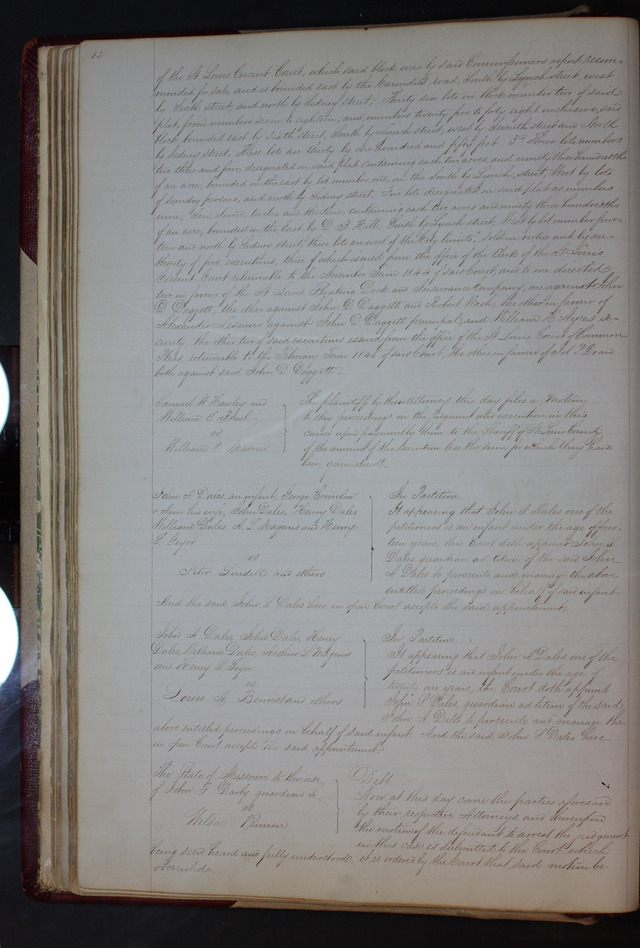 12
of the St Louis Circuit Court, which said block was by said Commissioners report recom-
mended for sale, and is bounded east by the Carondelet road South by Lynch street, west
by Sixth street, and north by Sidney street, Thirty six lots in block number two of said
plat, from numbers seven to eighteen, and numbers twenty five to forty eight inclusive, said
block bounded east by Sixth street, South by Lynch street, west by Seventh street and North
by Sidney street. These lots are thirty by one hundred and fifty feet. 3d Three lots numbers
two three and four, designated on said plat containing each two acres, and ninety three hundredths
of an acre, bounded on the east by lot number one, on the South by Lynch street, West by lots
of sundry persons, and north by Sidney street. Five lots designated on said plat as numbers
nine, ten, eleven, twelve and thirteen, containing each two acres and ninety three hundredths
of an acre, bounded on the east by D. F. Hill, South by Lynch street, West by lot number four-
teen and north by Sidney street, these lots are west of the City limits. Sold in virtue and by au-
thority of five executions, three of which issued from the office of the Clerk of the St Louis
Circuit Court returnable to the November Term 1844 of said Court, and to me directed
two in favor of the St Louis Floating Dock and Insurance Company, one against John
D Daggett, the other against John D Daggett and Robert Wash, the other in favor of
Alexander against John D Daggett principal, and William B. Ayres se-
curity, the other two of said executions issued from the office of the St Louis Court of Common
Pleas returnable to the February Term 1845 of said Court, the other in favor of Doan
both against said John D Daggett.
Samuel W Hawley and
William C
vs
William O
The plaintiff by their Attorney this day files a Motion
to stay proceedings on the Judgment and execution in this
cause upon payment by them to the Sheriff of St Louis County
of the amount of the execution less the sum for which they have
been garnisheed.
John A Dales an infant, George
& Ann his wife, John Dales, Henry Dales
William Dales, A L Magenis and Henry
S. Geyer
vs
Peter Lindell and others
In Partition
It appearing that John A Dales one of the
petitioners is an infant under the age of four-
teen years, the Court doth appoint John S
Dales guardian ad litem of the said John
A Dales to prosecute and manage the above
entitled proceedings in behalf of said infant
And the said John S Dales here in open Court accepts the said appointment.
John A Dales, John Dales, Henry
Dales, William Dales, Arthur L Magenis
and Henry S Geyer
vs
Louis A. Benoist and others
In Partition
It appearing that John A Dales one of the
petitioners is an infant under the age of
twenty one years, the Court doth appoint
John S Dales, guardian ad litem of the said
John A Dales to prosecute and manage the
above entitled proceedings on behalf of said infant. And the said John S Dales here
in open Court accepts the said appointment.
The State of Missouri to the use
of John F Darby guardian &c
vs
Debt
Now at this day come the parties aforesaid
by their respective Attorneys and thereupon
the motion of the defendant to arrest the judgment
in this case is submitted to the Court which
being seen heard and fully understood, it is ordered by the Court that said motion be
overruled.